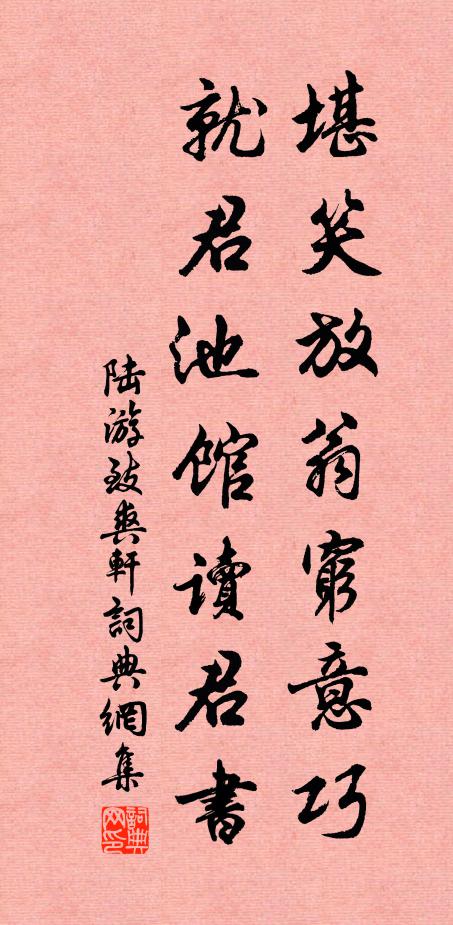 堪笑放翁窮意巧
就君池館讀君書
陸游致爽軒詞典網集
詞典网印